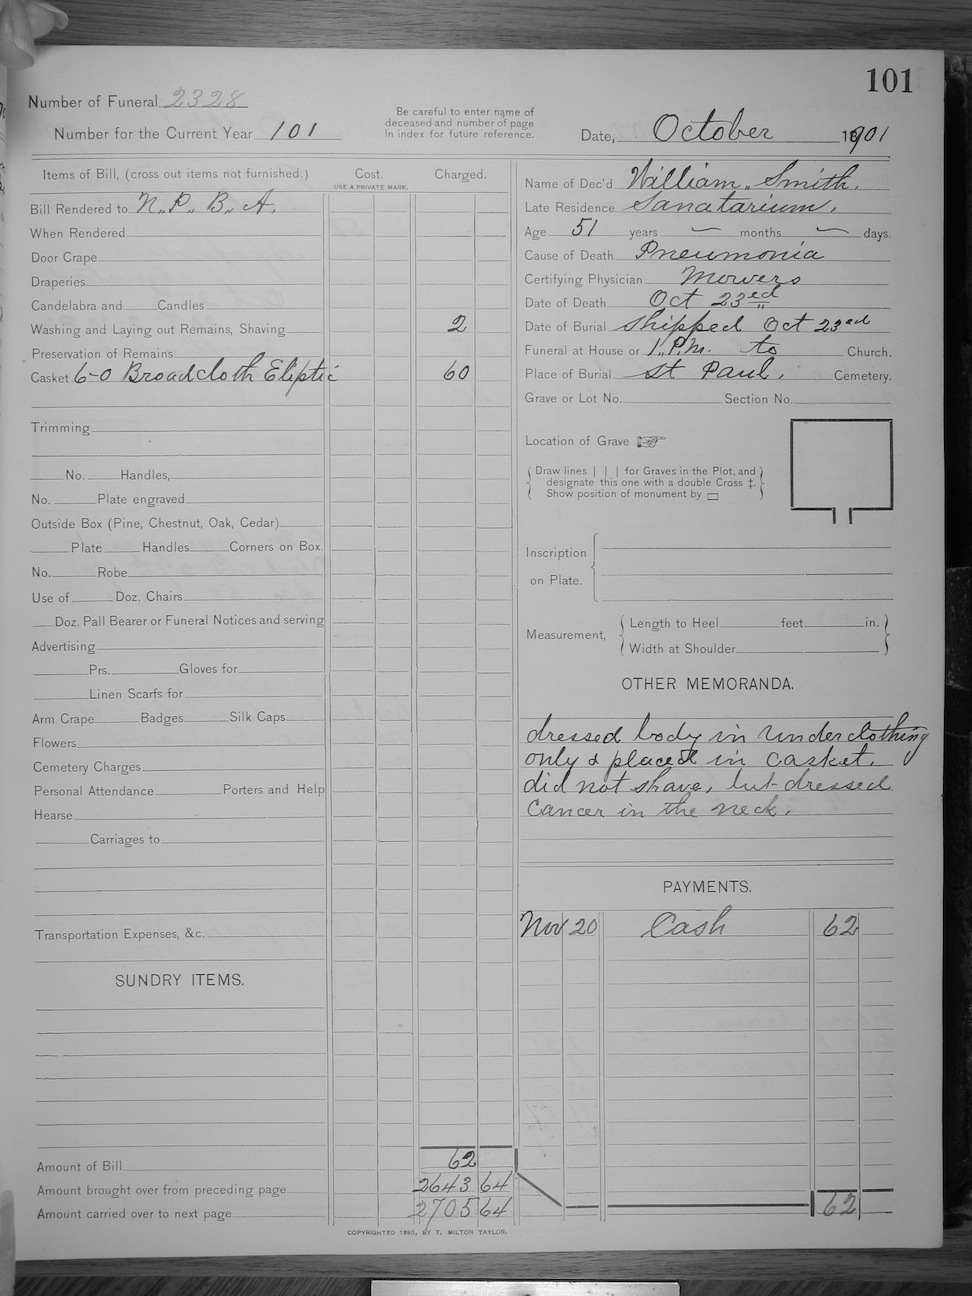 101
Number of Funeral 2328
Number for the Current Year 101
Be careful to enter name of
deceased and number of page
in index for future reference.
Date, October 1901
Items of Bill, (cross out items not furnished.) Cost. Charged.
USE A PRIVATE MARK.
Bill Rendered to N.P. B. A.
When Rendered
Door Crape
Draperies
Candelabra and Candles
Washing and Laying out Remains, Shaving 2
Preservation of Remains
Casket 6-0 Broadcloth Eliptic 60
Trimming
No. Handles,
No. Plate engraved
Outside Box (Pine, Chestnut, Oak, Cedar)
Plate Handles Corners on Box.
No. Robe
Use of Doz. Chairs
Doz. Pall Bearer or Funeral Notices and serving
Advertising
Prs. Gloves for
Linen Scarfs for
Arm Crape Badges Silk Caps
Flowers
Cemetery Charges
Personal Attendance Porters and Help
Hearse
Carriages to
Transportation Expenses, &c.
SUNDRY ITEMS.
Amount of Bill 62
Amount brought over from preceding page 2643 64
Amount carried over to next page 2705 64
Name of Dec'd William Smith.
Late Residence Sanatarium.
Age 51 years — months — days.
Cause of Death Pneumonia
Certifying Physician Mowers
Date of Death Oct 23ed
Date of Burial shipped Oct 23ed
Funeral at House or 1.P.M. to Church.
Place of Burial St Paul. Cemetery.
Grave or Lot No. Section No.
Location of Grave
Draw lines | | | for Graves in the Plot, and
designate this one with a double Cross ‡.
Show position of monument by ▭
Inscription
on Plate.
Measurement, Length to Heel feet in.
Width at Shoulder
OTHER MEMORANDA.
dressed body in underclothing
only & placed in casket.
did not shave, but dressed
Cancer in the neck.
PAYMENTS.
Nov 20 Cash 62
62
COPYRIGHTED 1890, BY T. MILTON TAYLOR.